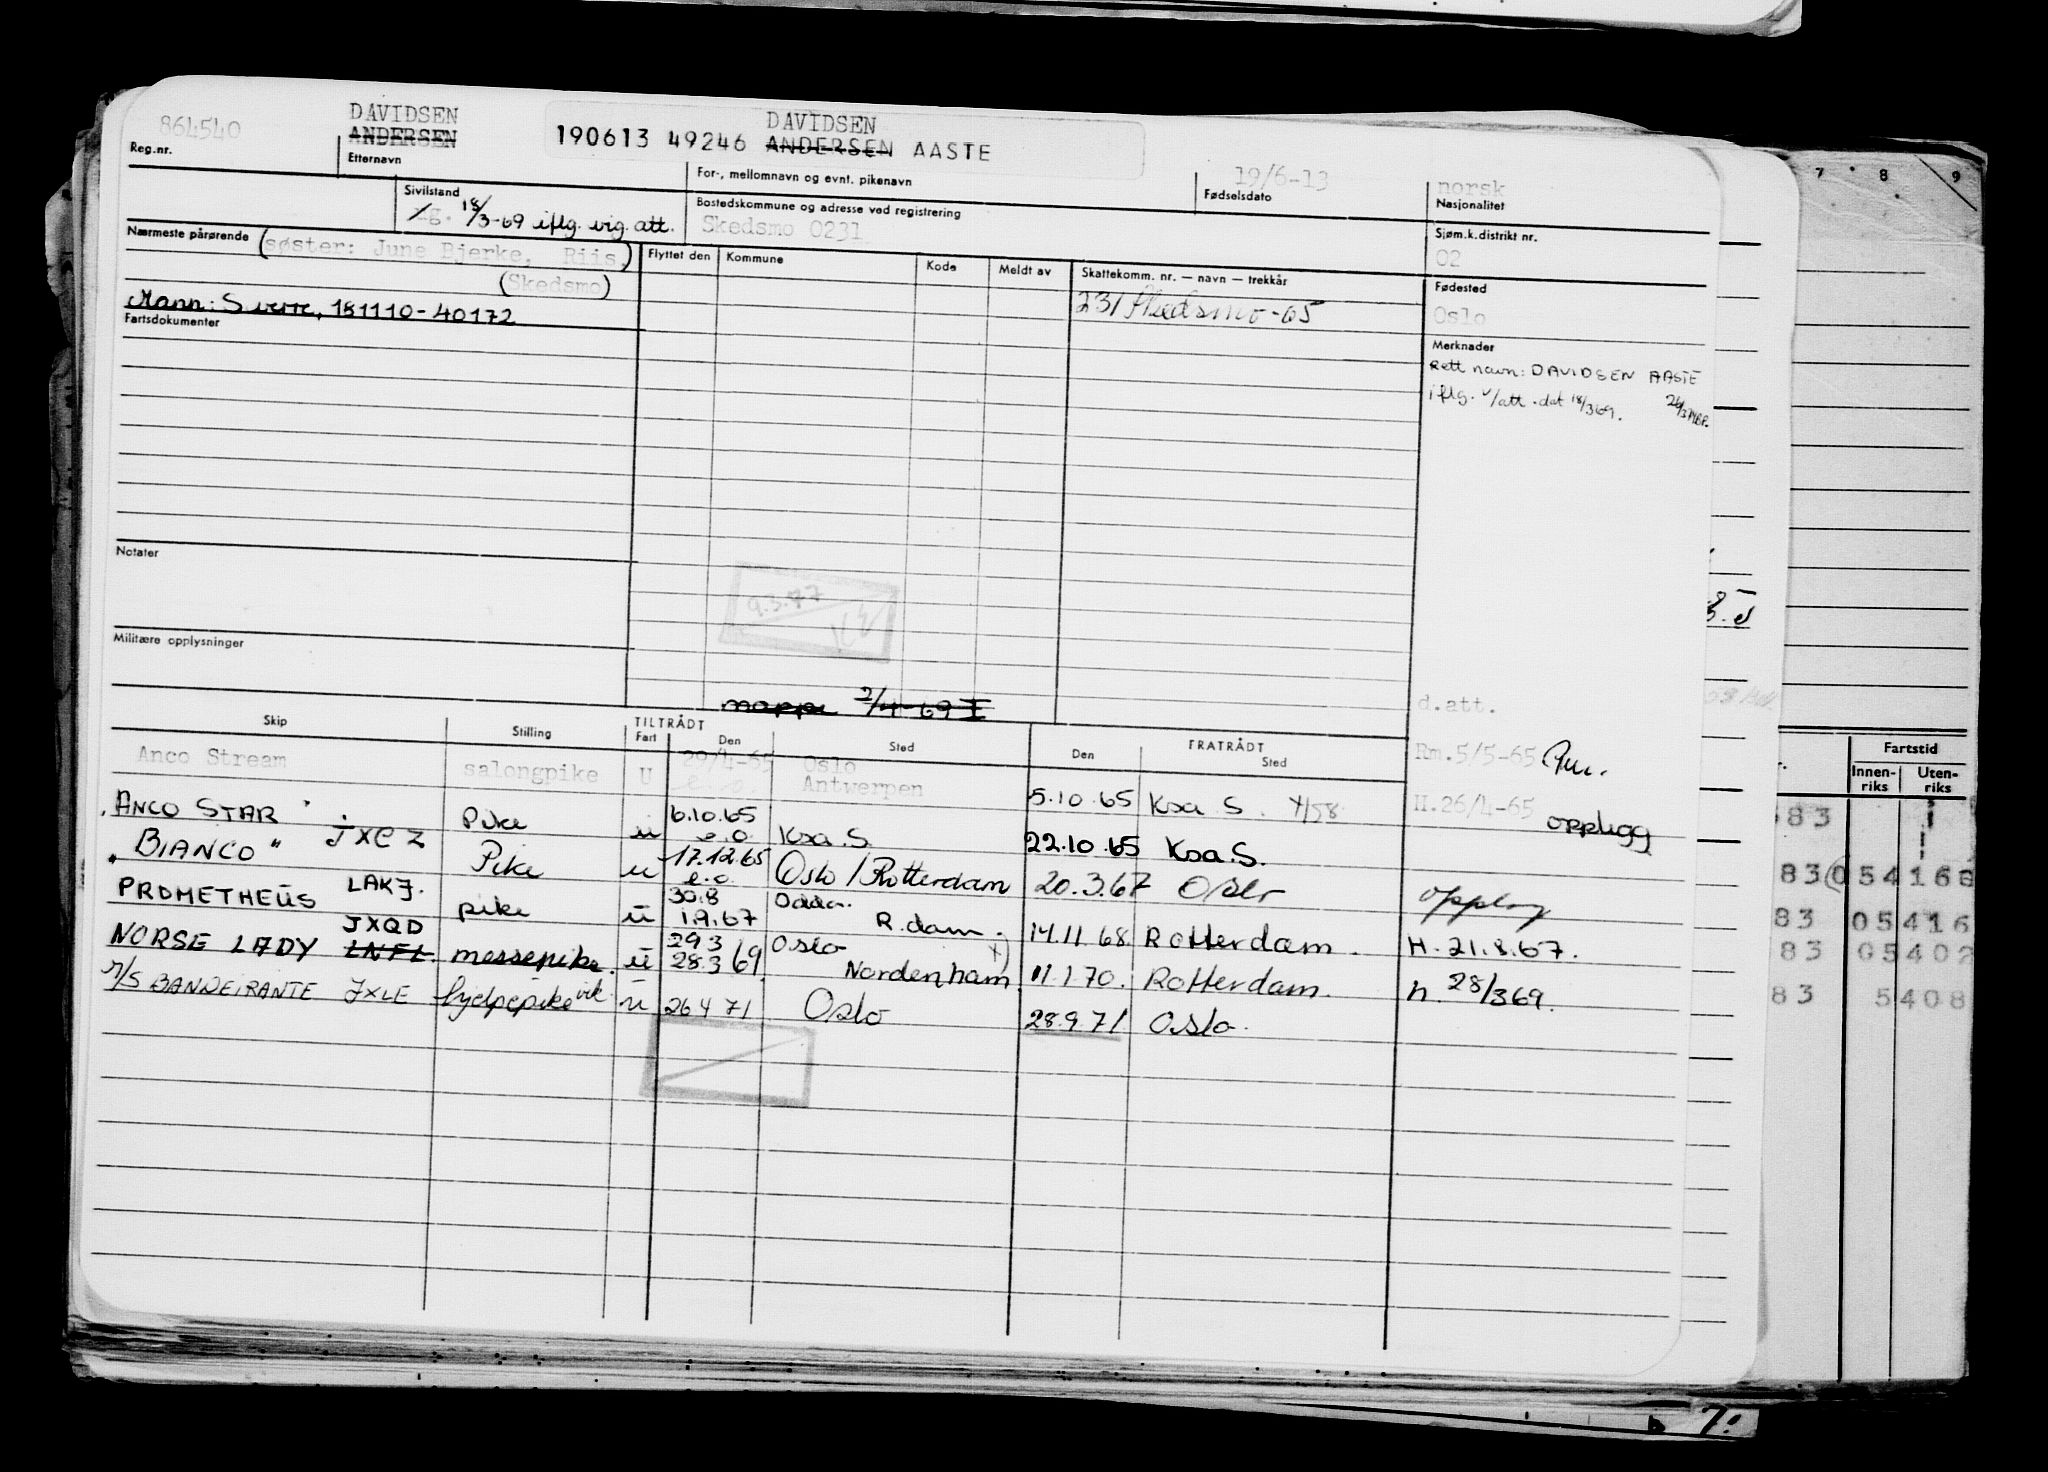 864540
DAVIDSEN
ANDERSEN
DAVIDSEN
190613 49246 ANDERSEN AASTE
Reg.nr.
Etternavn
For-, mellomnavn og evnt. pikenavn
19/6-13
Fødselsdato
norsk
Nasjonalitet
Sivilstand
18/3-69 iflg. vig. att.
Bostedskommune og adresse ved registrering
Skedsmo 0231
Sjøm.k.distrikt nr.
02
Nærmeste pårørende
(søster: June Bjerke, Riis,
(Skedsmo)
Mann: Sverre, 181110-40172
Flyttet den
Kommune
Kode
Meldt av
Skattekomm. nr. — navn — trekkår
231 Skedsmo-65
Fødested
Oslo
Fartsdokumenter
Merknader
Rett navn: DAVIDSEN AASTE
iflg. v/att. dat 18/369.
Notater
9.3.77
Militære opplysninger
mappe 2/4-69 I
d.att.
Skip
Stilling
TILTRÅDT
Fart
Den
Sted
FRATRÅDT
Den
Sted
Anco Stream salongpike U 29/4-65 e.o. Oslo Antwerpen 5.10.65 Ksa S. Rm.5/5-65
"ANCO STAR" JXCZ Pike u 6.10.65 e.o Ksa.S. 22.10.65 Ksa.S. H.26/4-65 opplegg
"BIANCO" LAKJ. Pike u 17.12.65 e.o. Oslo/Rotterdam 20.3.67 Oslo opplegg
PROMETHEUS JXQD pike u 30.8 1.9.67 Odda. R.dam. 14.11.68 Rotterdam. H. 21.8.67.
NORSE LADY LNFL. messepike. u 29 3 28.3 69. Oslo Nordenham x) 11.1.70. Rotterdam. h. 28/369.
M/S BANDEIRANTE JXLE hjelpepike vik. u 26 4 71 Oslo 28.9.71 Oslo.
7 8 9
Fartstid
Innen-
riks
Uten-
riks
83
83 054168
83 05416
83 05402
83 5408
7.